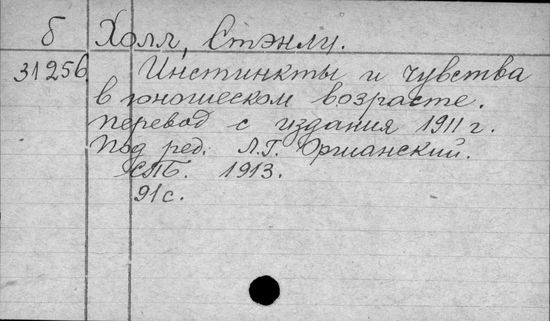 б Холл, Стэнли.
31256 Инстинкты и чувства
в юношеском возрасте.
перевод с издания 1911 г.
Под ред. Л.Г. Оршанский.
СПБ. 1913.
91 с.